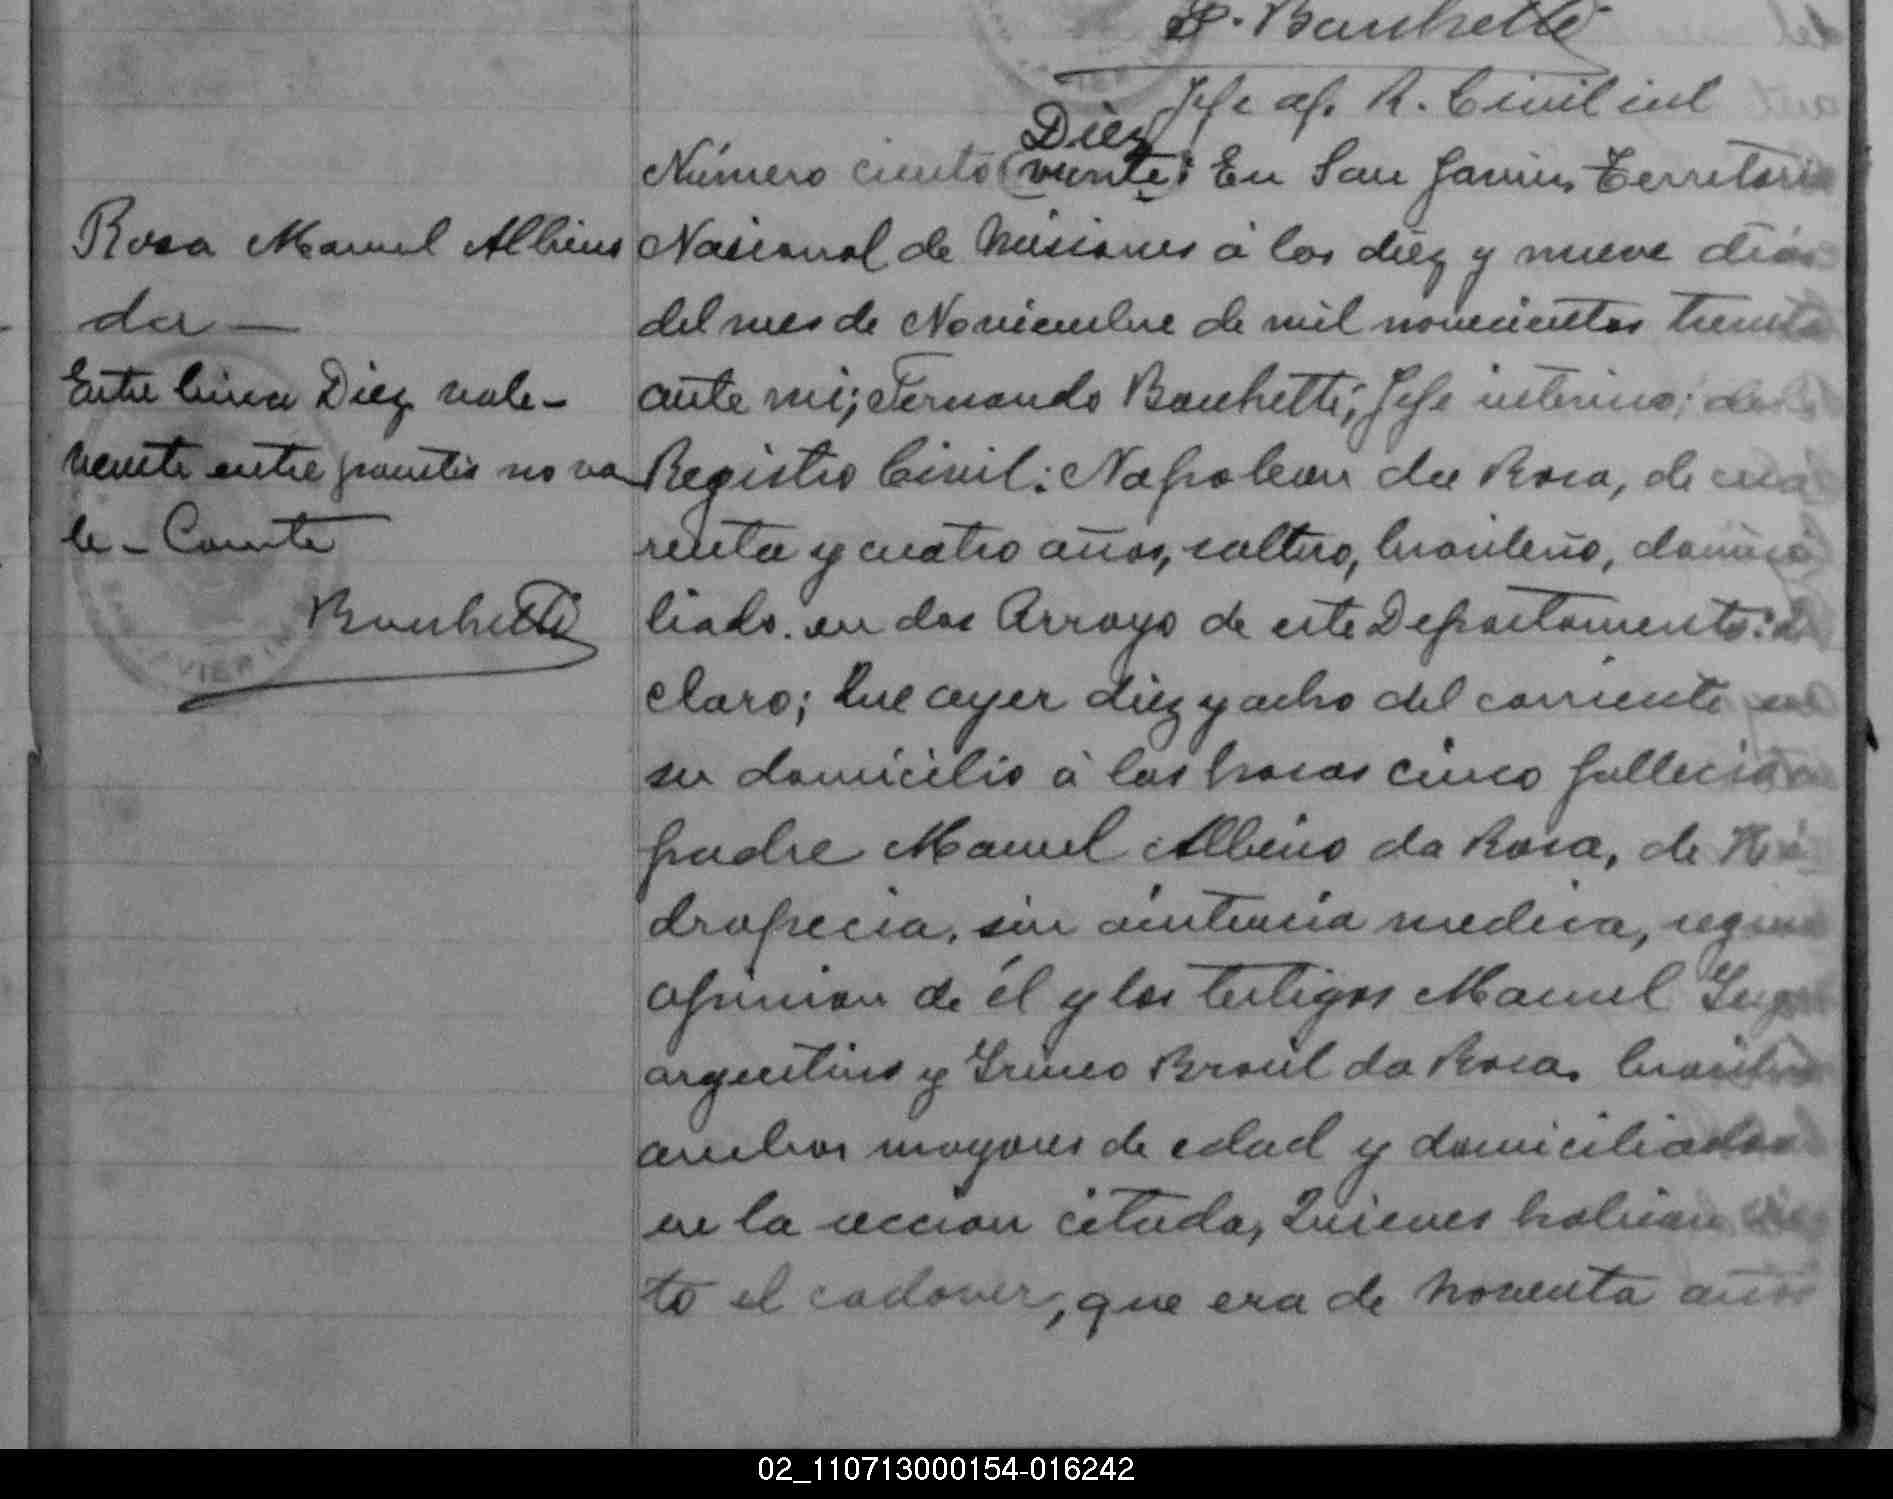 F. Banchetti
Jefe of. R. Civil int
Diez
Número ciento (veinte): En San Javier, Territorio
Nacional de Misiones á los diez y nueve dias
del mes de Noviembre de mil novecientos treinta
ante mi; Fernando Banchetti; Jefe interino; del
Registro Civil: Napoleon da Rosa, de cua
renta y cuatro años, soltero, brasileño, domici
liado. en dos Arroyo de este Departamento: de
claro; Que ayer diez y ocho del corriente en
su domicilio á las horas cinco fallecio su
padre Manuel Albino da Rosa, de Hi
dropecia, sin asistencia medica, segun
opinion de él y los testigos Manuel
argentino y Irineo Brasil da Rosa, brasileño
ambos mayores de edad y domiciliados
en la seccion citada, Quienes habian vis
to el cadaver, que era de noventa años
Rosa Manuel Albino
da —
Entre linea Diez vale -
veinte entre parentis no va
le - Conste
Banchetti
VIER
02_110713000154-016242